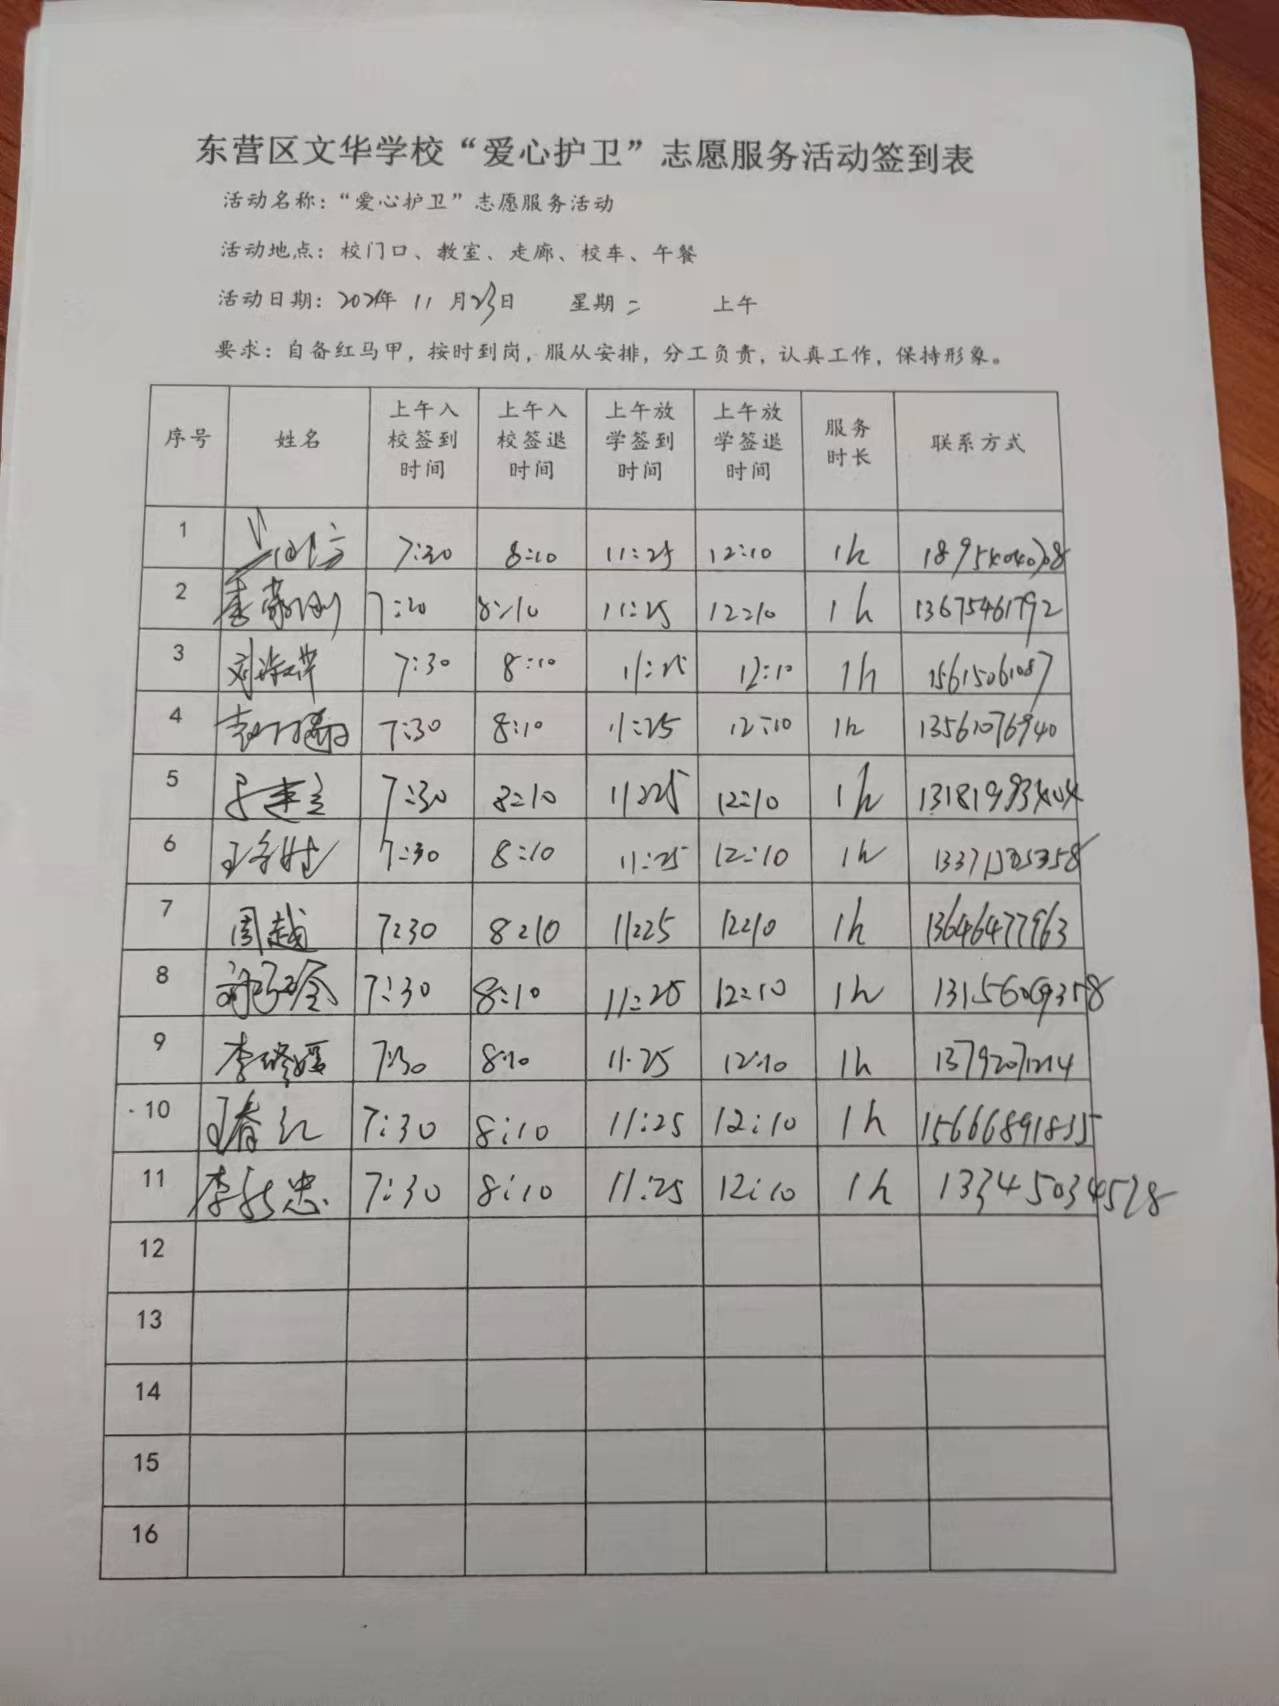 东营区文华学校“爱心护卫”志愿服务活动签到表
活动名称：“爱心护卫”志愿服务活动
活动地点：校门口、教室、走廊、校车、午餐
活动日期：2021年 11 月23日 星期二 上午
要求：自备红马甲，按时到岗，服从安排，分工负责，认真工作，保持形象。
序号 姓名 上午入校签到时间 上午入校签退时间 上午放学签到时间 上午放学签退时间 服务时长 联系方式
1 7:30 8:10 11:25 12:10 1h
2 7:20 8:10 11:25 12:10 1h 13675461792
3 7:30 8:10 11:25 12:10 1h 15615061087
4 7:30 8:10 11:25 12:10 1h 13561076940
5 于建立 7:30 8:10 11:25 12:10 1h 13181993404
6 7:30 8:10 11:25 12:10 1h
7 周越 7:30 8:10 11:25 12:10 1h 13646477963
8 7:30 8:10 11:25 12:10 1h 13156069358
9 李修媛 7:30 8:10 11:25 12:10 1h 13792071214
10 王春红 7:30 8:10 11:25 12:10 1h 15666891835
11 7:30 8:10 11:25 12:10 1h 13345034528
12
13
14
15
16